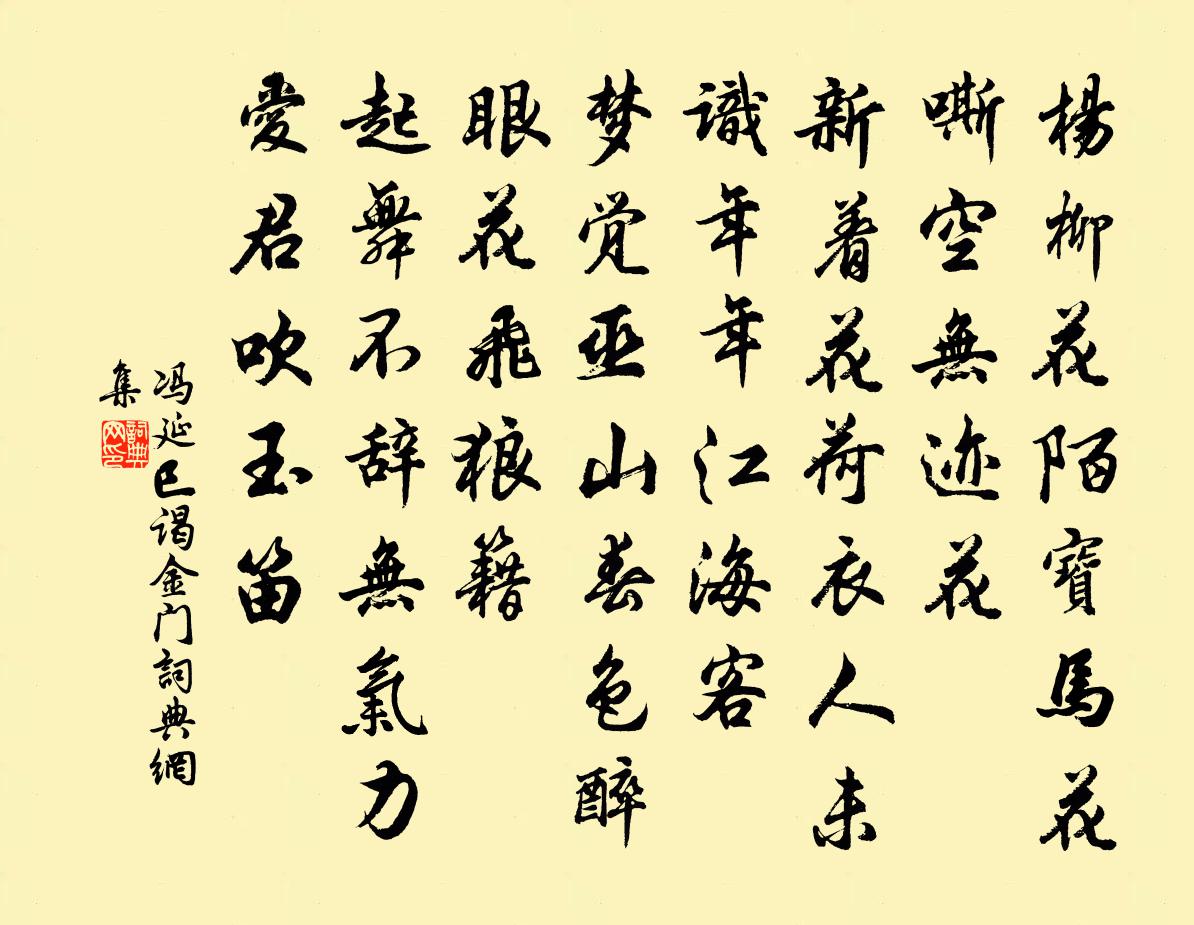 楊柳花陌寶馬花
嘶空無迹花
新着花荷衣人未
識年年江海客
梦觉巫山春色醉
眼花飛狼籍
起舞不辞無氣力
愛君吹玉笛
冯延巳谒金门詞典網
集
詞典
网印